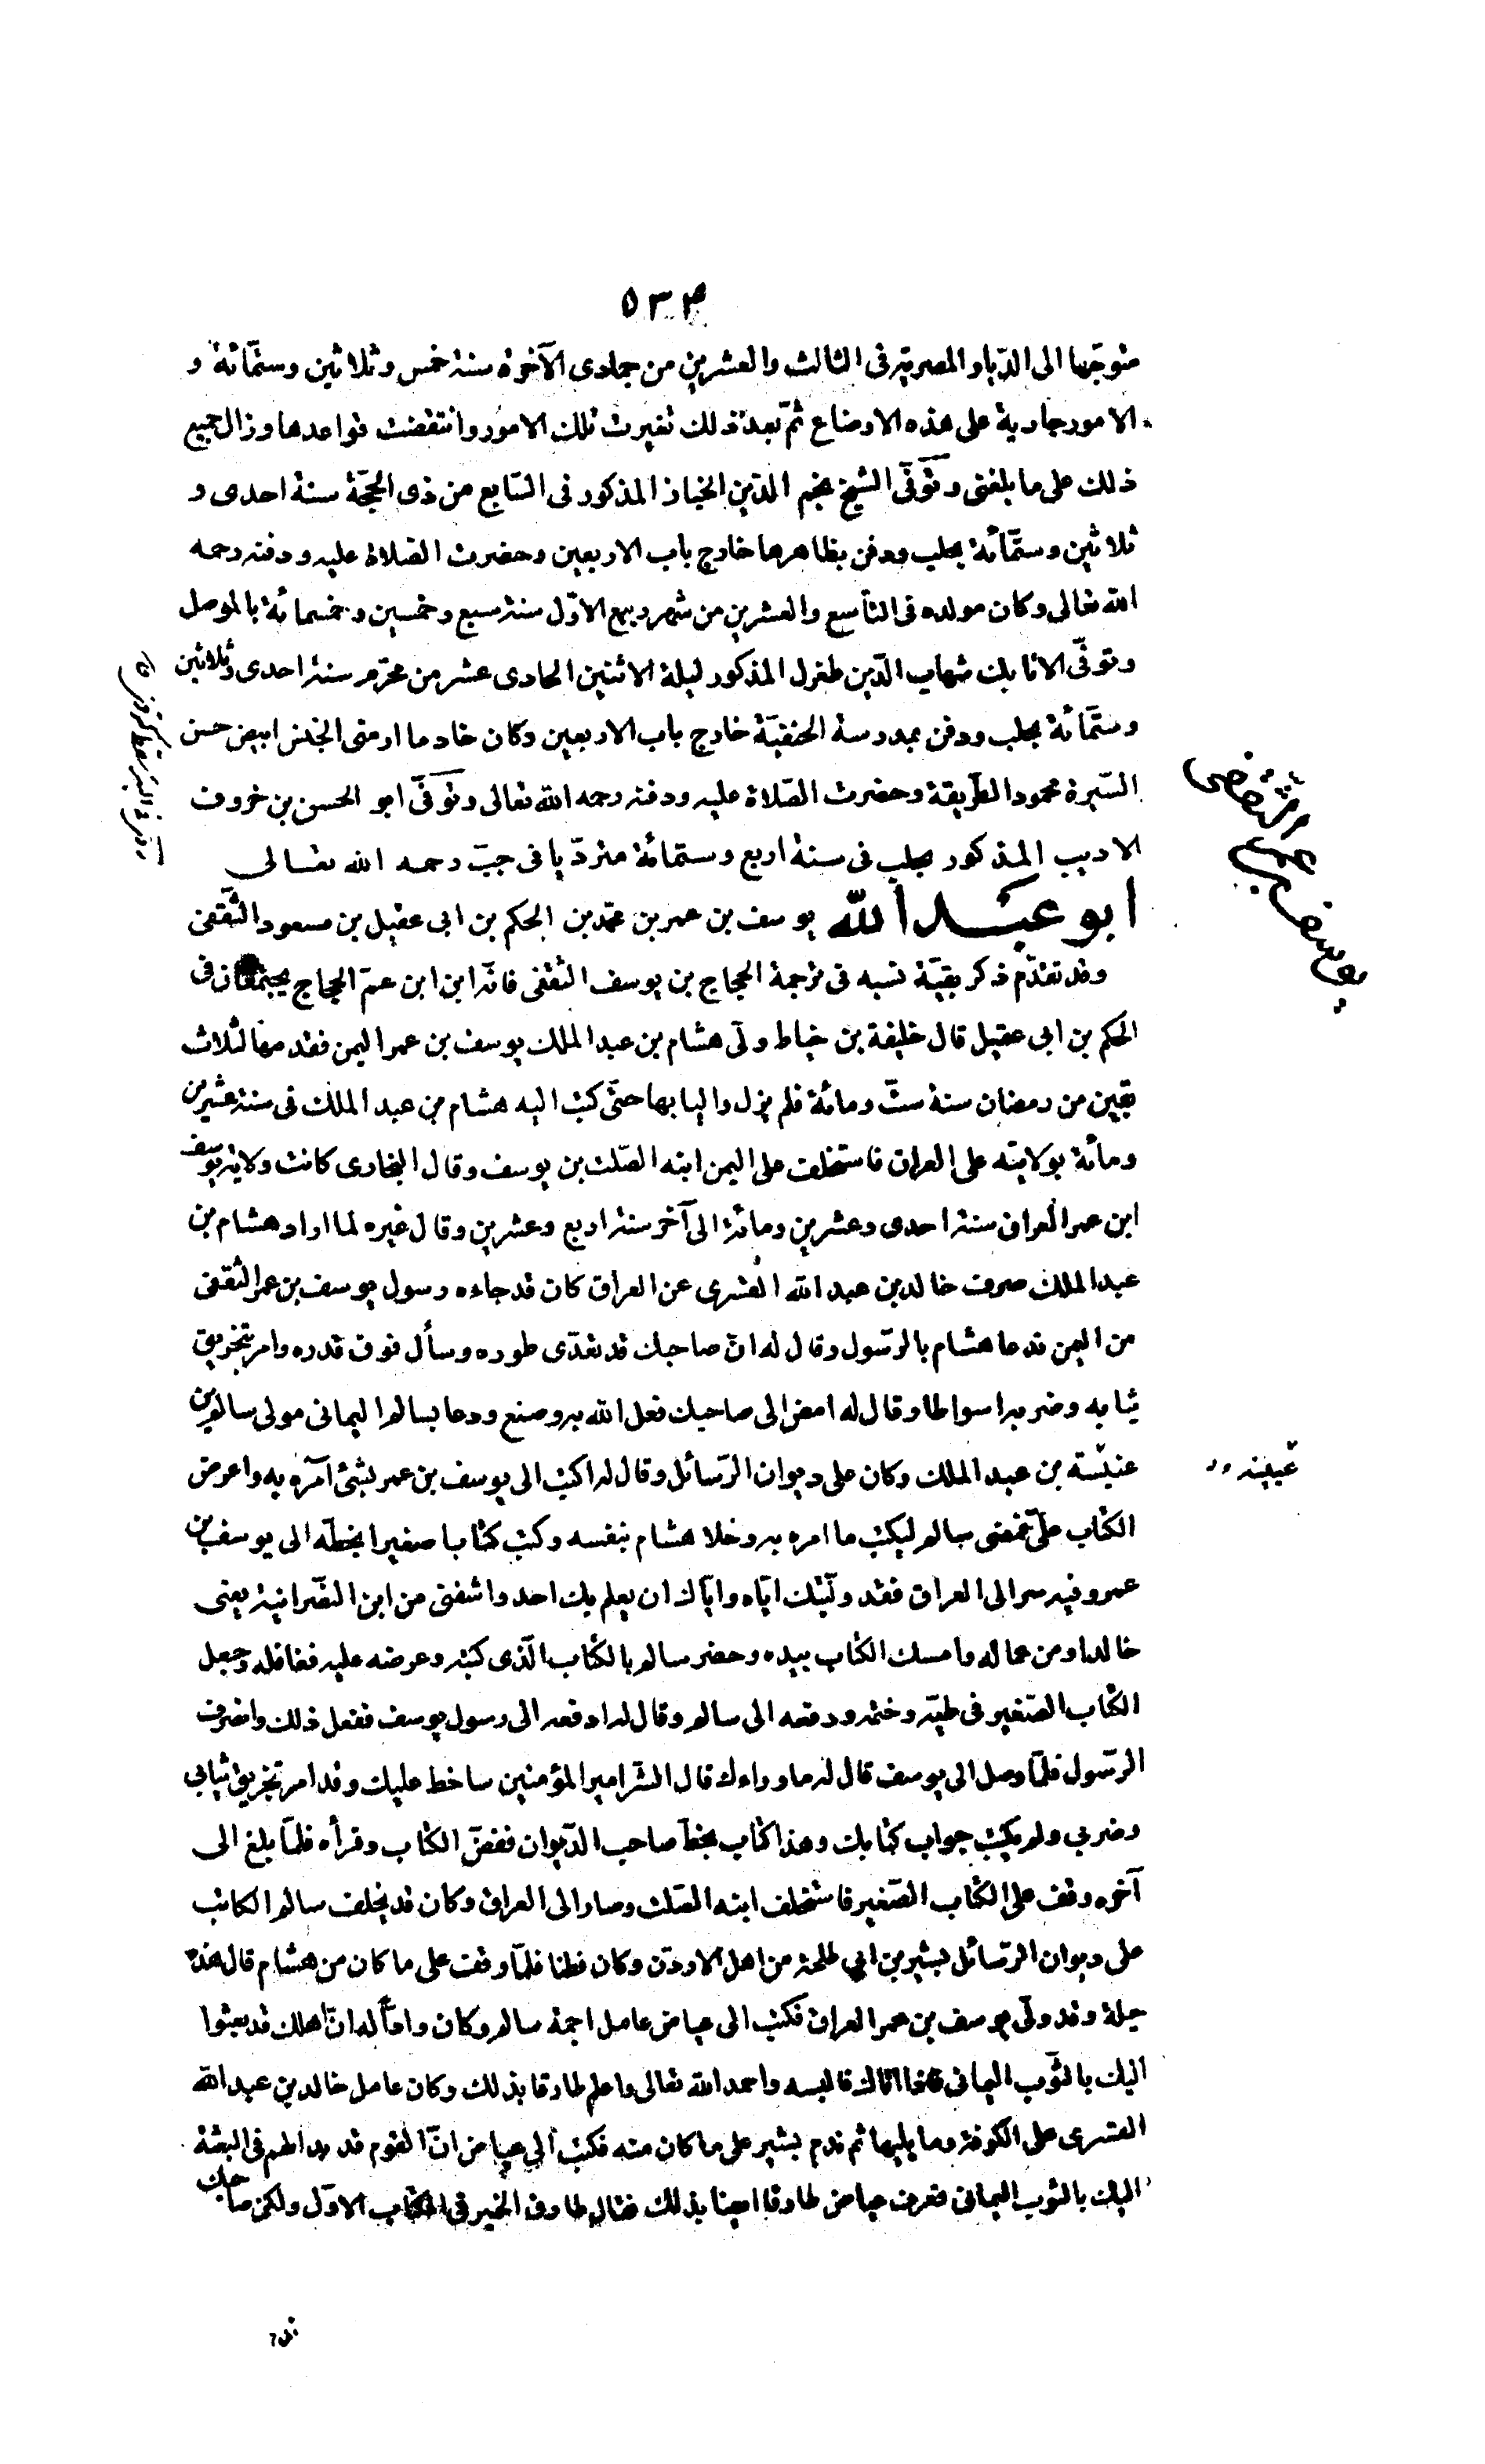 ٥٣٤
متوجّها الى الدّيار المصريّة فى الثالث والعشرين من جمادى الآخرة سنة خمس وثلاثين وستّمائة و
الامور جارية على هذه الاوضاع ثمّ بعد ذلك تغيرت تلك الامور وانتقضت قواعدها وزال جميع
ذلك على ما بلغنى وتوفّى الشيخ نجم الدّين الخباز المذكور فى السّابع من ذى الحجّة سنة احدى و
ثلاثين وستّمائة بحلب ودفن بظاهرها خارج باب الاربعين وحضرت الصّلاة عليه ودفنه رحمه
الله تعالى وكان مولده فى التاسع والعشرين من شهر ربيع الاوّل سنة سبع وخمسين وخمسمائة بالموصل
وتوفّى الاتابك شهاب الدّين طغرل المذكور ليلة الاثنين الحادى عشر من محرّم سنة احدى وثلاثين
وستّمائة بحلب ودفن بمدرسة الحنفيّة خارج باب الاربعين وكان خادما ارمنى الجنس ابيض حسن
السّيرة محمود الطّريقة وحضرت الصّلاة عليه ودفنه رحمه الله تعالى وتوفّى ابو الحسن بن خروف
الاديب المذكور بحلب فى سنة اربع وستمائة متردّيا فى جبّ رحمه الله تعالى
ابو عبد الله يوسف بن عمر بن محمّد بن الحكم بن ابى عقيل بن مسعود الثّقفى
يوسف بن عمر الثقفى
وقد تقدّم ذكر بقيّة نسبه فى ترجمة الحجاج بن يوسف الثقفى فانّه ابن ابن عمّ الحجاج يجتمعان فى
الحكم بن ابى عقيل قال خليفة بن خياط ولّى هشام بن عبد الملك يوسف بن عمر اليمن فقدمها لثلاث
بقين من رمضان سنة ستّ ومائة فلم يزل واليا بها حتّى كتب اليه هشام بن عبد الملك فى سنة عشرين
ومائة بولايته على العراق فاستخلف على اليمن ابنه الصّلت بن يوسف وقال البخارى كانت ولاية يوسف
ابن عمر العراق سنة احدى وعشرين ومائة الى آخر سنة اربع وعشرين وقال غيره لما اراد هشام بن
عبد الملك صرف خالد بن عبد الله القسرى عن العراق كان قد جاءه رسول يوسف بن عمر الثقفى
من اليمن فدعا هشام بالرّسول وقال له انّ صاحبك قد تعدّى طوره وسأل فوق قدره وامر بتخريق
ثيابه وضربه اسواطا وقال له امض الى صاحبك فعل الله به وصنع ودعا بسالم اليمانى مولى سالم بن
عنبسة بن عبد الملك وكان على ديوان الرّسائل وقال له اكتب الى يوسف بن عمر بشئ آمره به واعرض
الكتاب علىّ فمضى سالم ليكتب ما امره به وخلا هشام بنفسه وكتب كتابا صغيرا بخطّه الى يوسف بن
عمر وفيه سر الى العراق فقد ولّيتك ايّاه وايّاك ان يعلم بك احد واشفنى من ابن النّصرانية يعنى
خالدا ومن عماله وامسك الكتاب بيده وحضر سالم بالكتاب الّذى كتبه وعرضه عليه فغافله وجعل
الكتاب الصّغير فى طيّه وختمه ودفعه الى سالم وقال له ادفعه الى رسول يوسف ففعل ذلك وانصرف
الرّسول فلمّا وصل الى يوسف قال له ما وراءك قال الشرّ امير المؤمنين ساخط عليك وقد امر بتخريق ثيابى
وضربى ولم يكتب جواب كتابك وهذا كتاب بخطّ صاحب الدّيوان ففضّ الكتاب وقرأه فلمّا بلغ الى
آخره وقف على الكتاب الصّغير فاستخلف ابنه الصّلت وصار الى العراق وكان قد يخلف سالم الكاتب
على ديوان الرّسائل بشير بن ابى طلحة من اهل الاردن وكان فطنا فلمّا وقف على ما كان من هشام قال هذه
حيلة وقد ولّى يوسف بن عمر العراق فكتب الى عياض عامل اجمة سالم وكان وادّا له انّ اهلك قد بعثوا
اليك بالثّوب اليمانى فاذا اتاك فالبسه واحمد الله تعالى واعلم طارقا بذلك وكان عامل خالد بن عبد الله
القسرى على الكوفة وما يليها ثم ندم بشير على ما كان منه فكتب الى عياض انّ القوم قد بدا لهم فى البعثة
اليك بالثوب اليمانى فعرف عياض طارقا ايضا بذلك فقال طارق الخبر فى الكتاب الاوّل ولكن صاحبك